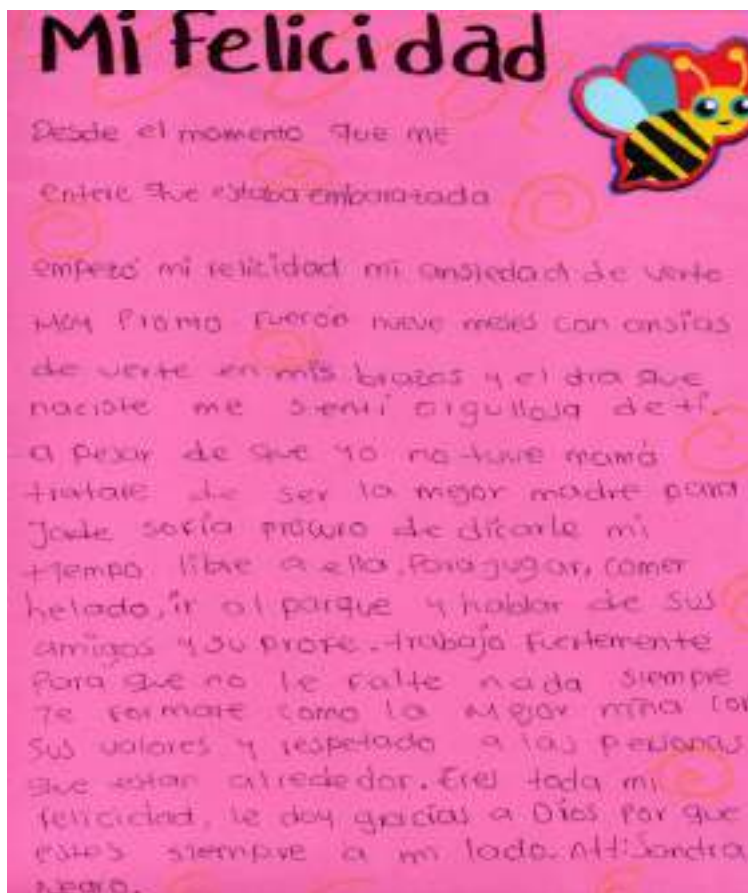 Mi felicidad
Desde el momento que me
entere que estaba embarazada
empezó mi felicidad mi ansiedad de verte
muy fueron nueve meses con ansias
de verte en mis brazos y el dia que
naciste me senti orgullosa de ti.
a pesar de que yo no tuve mamá
tratare de ser la mejor madre para
sofía procuro dedicarle mi
tiempo libre a ella. Para jugar, comer
helado, ir al parque y hablar de sus
amigos y su profe. trabajo fuertemente
Para que no le falte nada siempre
Te formare como la mejor niña con
sus valores y respetado a las personas
que estan alrededor. Eres toda mi
felicidad, le doy gracias a Dios Por que
estes siempre a mi lado. Att: Sandra
Negro.